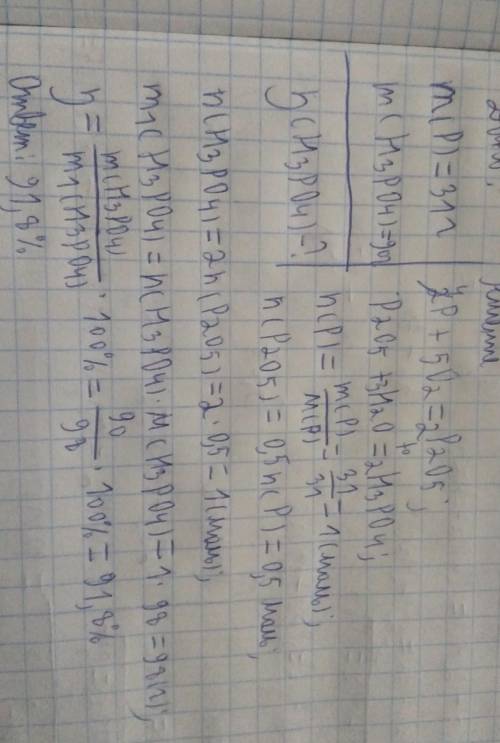 Дано:
m(P)=31г
m(H3PO4)=90г
η(H3PO4)-?
Решение
4P + 5O2 = 2P2O5;
P2O5 + 3H2O = 2H3PO4;
n(P) = m(P)/M(P) = 31/31 = 1(моль);
n(P2O5) = 0,5n(P) = 0,5 моль;
n(H3PO4) = 2n(P2O5) = 2·0,5 = 1(моль);
m1(H3PO4) = n(H3PO4)·M(H3PO4) = 1·98 = 98(г);
η = m(H3PO4)/m1(H3PO4) · 100% = 90/98 · 100% = 91,8%
Ответ: 91,8%